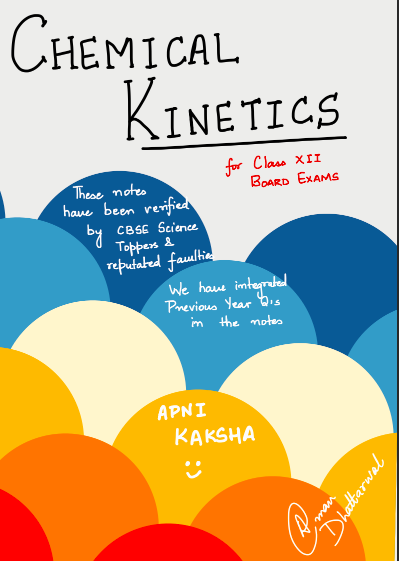 CHEMICAL
KINETICS
for Class XII
BOARD EXAMS
These notes
have been verified
by CBSE Science
Toppers &
reputated faulties
We have integrated
Previous Year Q's
in the notes
APNI
KAKSHA
Aman
Dhattarwal